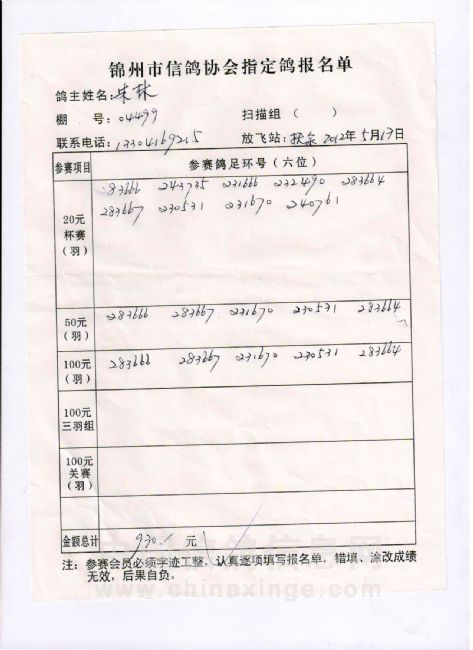 锦州市信鸽协会指定鸽报名单
鸽主姓名: 朱林
棚 号: 04499 扫描组 ( )
联系电话: 13304169215 放飞站: 2012年5月19日
参赛项目 参赛鸽足环号(六位)
20元杯赛(羽) 283666 243735 231666 232490 283664
283667 230531 231670 240761
50元(羽) 283666 283667 231670 230531 283664
100元(羽) 283666 283667 231670 230531 283664
100元三羽组
100元关赛(羽)
金额总计 930. 元
注: 参赛会员必须字迹工整,认真逐项填写报名单,错填、涂改成绩
无效,后果自负。
www.chinaxinge.com